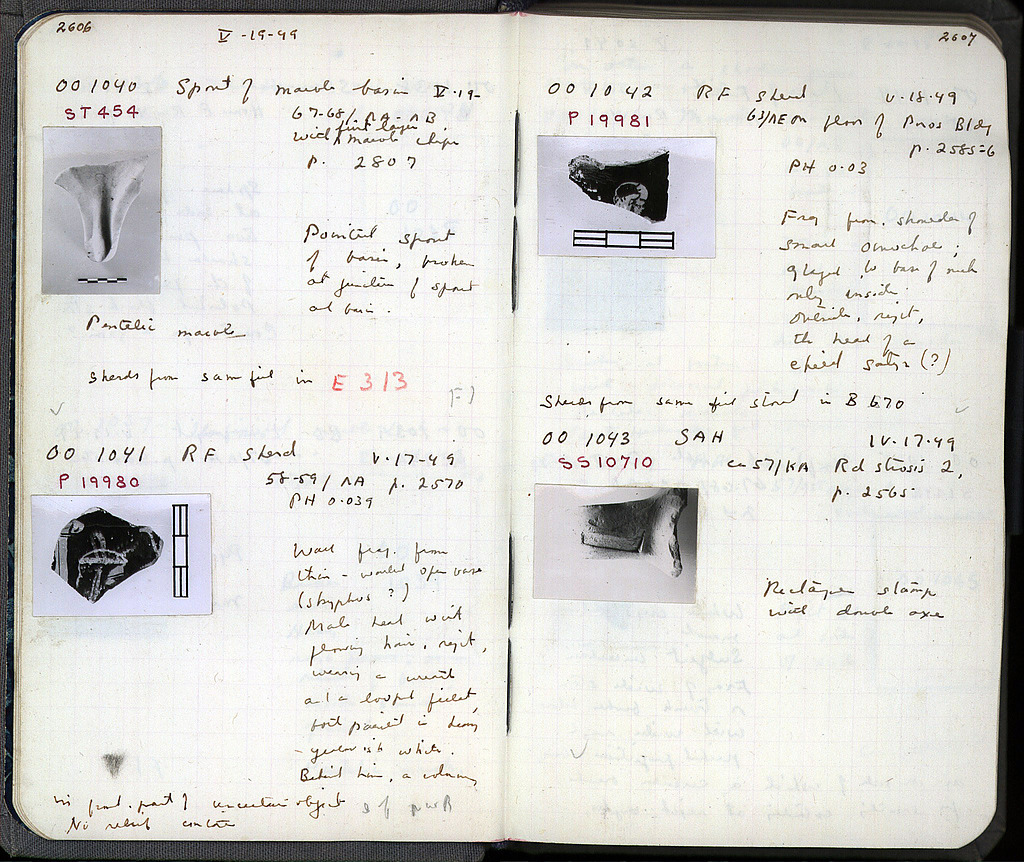 2606
V-19-49
OO 1040 Spout of marble basin V-19-
ST 454
67-68/ΛΑ-ΛΒ
with marble chips
joint layer
p. 2807
Pointed spout
of basin, broken
at junction of spout
and basin.
Pentelic marble
Sherds from same fill in E 313
F)
OO 1041 RF Sherd V-17-49
P 19980
58-59/ΛΑ p. 2570
PH 0.039
Wall frag. from
thin-walled open vase
(skyphos?)
Male head with
flowing hair, right,
wearing a wreath
and a looped fillet,
both painted in
-yellowish white.
Behind him, a column,
in front, part of uncertain object
No relief contour
2607
OO 1042 RF Sherd V-18-49
P 19981
63/ΛΕ on floor of Poros Bldg
p. 2585-6
PH 0.03
Frag from shoulder of
small oinochoe;
glazed to base of neck
only inside.
Outside, right,
the head of a
child satyr (?)
Sherds from same fill stored in B 670
OO 1043 SAH IV-17-49
SS 10710
ca 57/ΚΛ Rd stosis 2,
p. 2565
Rectangular stamp
with double axe